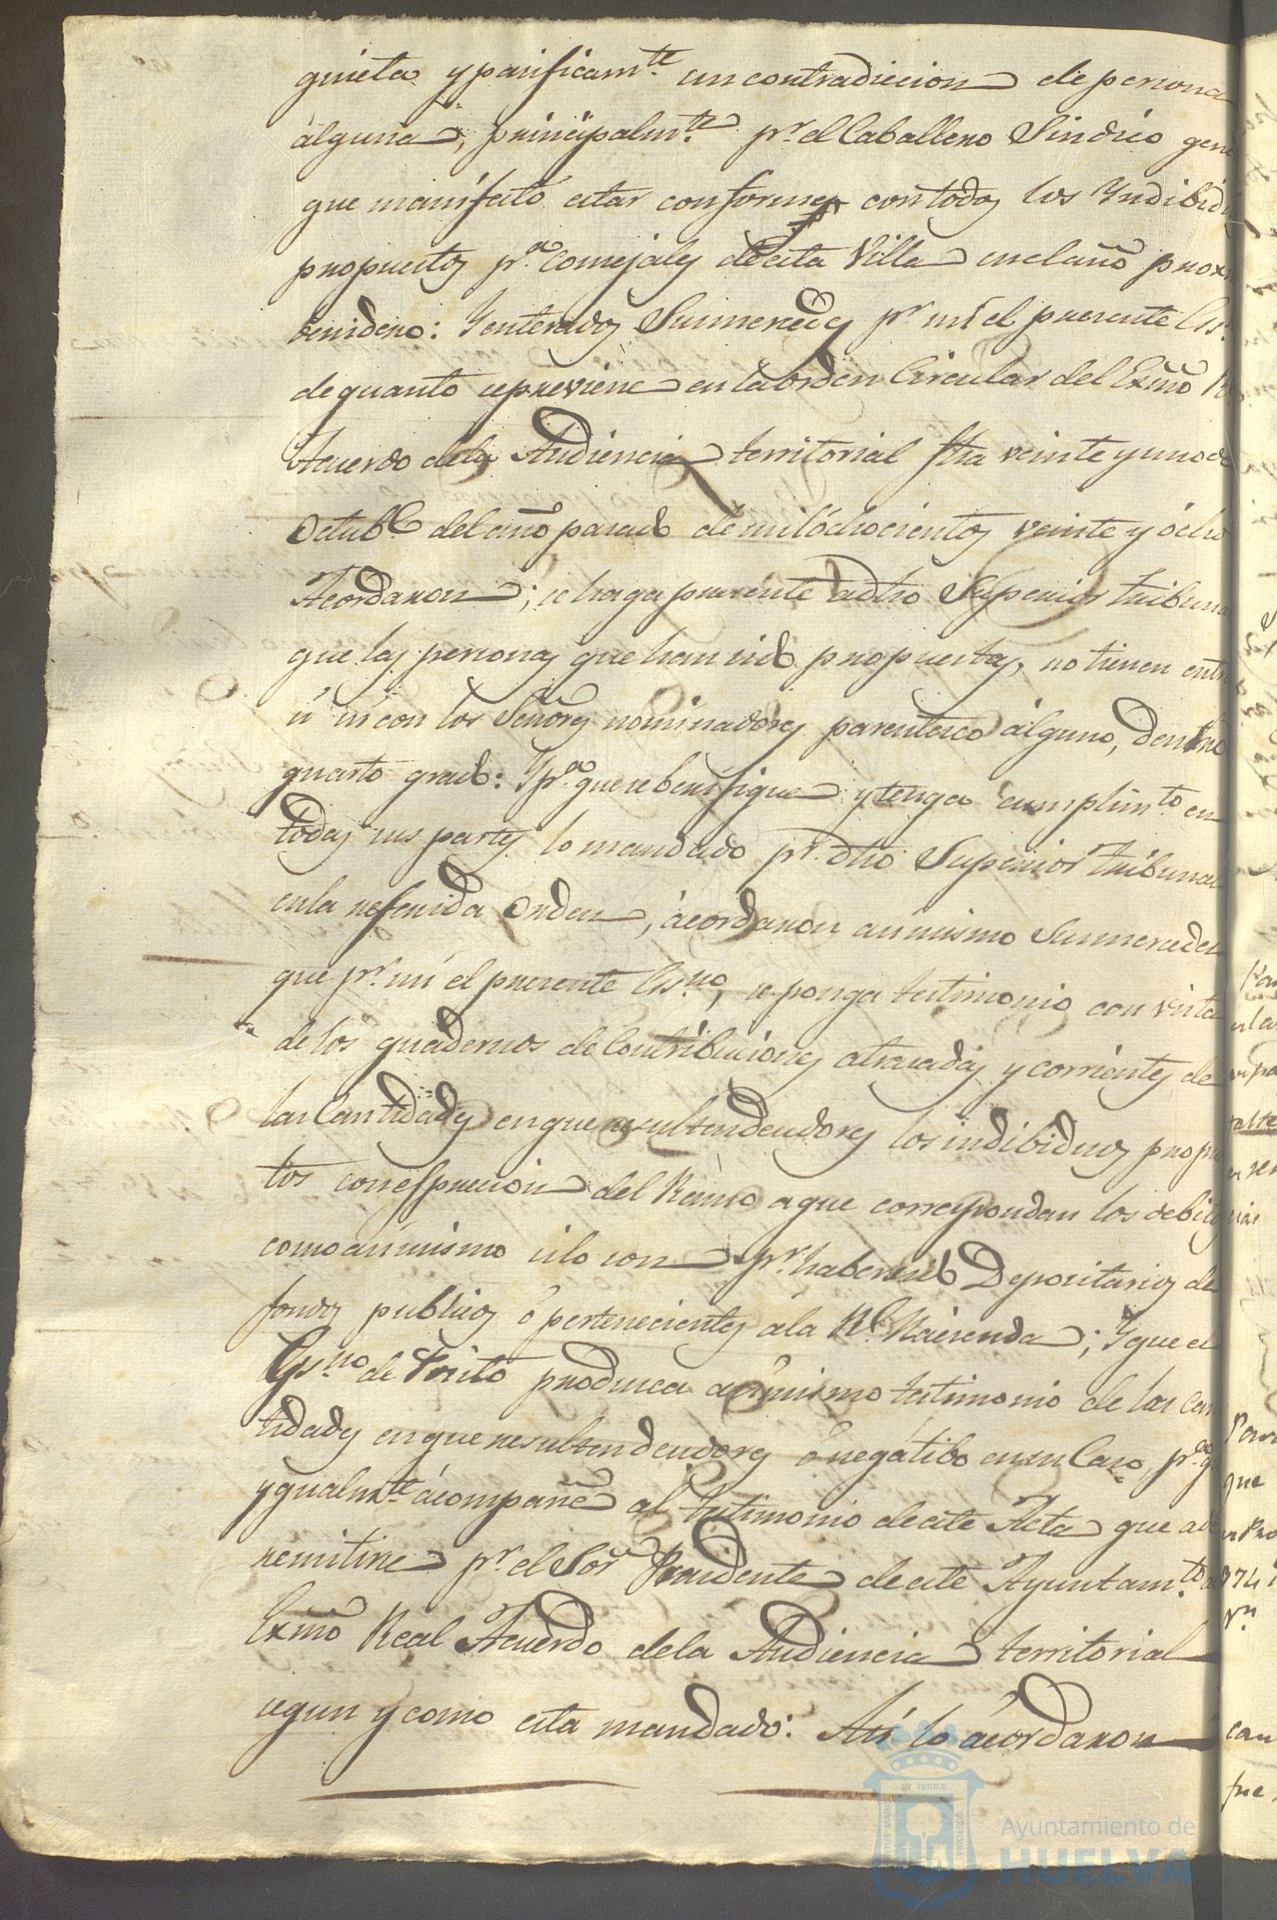 quieta y pacificam.te sin contradiccion de persona
alguna, principalm.te p.r el Caballero Sindico gene
que manifestó estar conforme con todos los Yndibidu
propuestos p.a Concejales de esta Villa en el año prox
benidero: Y enterados Sus mercedes p.r mi el presente Es.
de quanto se previene en la orden Circular del Exmô R
Acuerdo de la Audiencia territorial fha veinte y uno de
Octub.e del año pasado de mil óchocientos veinte y ócho
Acordaron; se haga presente a dho Superior tribuna
que las personas que han sido propuestas, no tienen entre
si ni con los Señores nominadores parentesco alguno, dentro
quarto grado: Y p.a que se berifique y tenga cumplim.to en
todas sus partes lo mandado p.r dho Superior tribunal
en la referida Orden, ácordaron asimismo Sus mercedes
que p.r mi el presente Es.no, se ponga testimonio con vista
de los quadernos de Contribuciones atrasadas y corrientes de
las Cantidades en que resulten deudores los indibiduos propues
tos con espresion del Ramo a que correspondan los debitos
como asimismo si lo son p.r haber sido Depositarios de
fondos publicos ó pertenecientes a la R.l Hacienda; Y que el
Es.no de Pósito produzca asimismo testimonio de las can
tidades en que resulten deudores ó negátibo en su Caso, p.a q.
ygualm.te ácompañe al testimonio de este Acta que a de
remitirse p.r el Sor Presidente de este Ayuntam.to al
Exmô Real Acuerdo de la Audiencia territorial
segun y como esta mandado: Así lo ácordaron
Ayuntamiento de
HUELVA